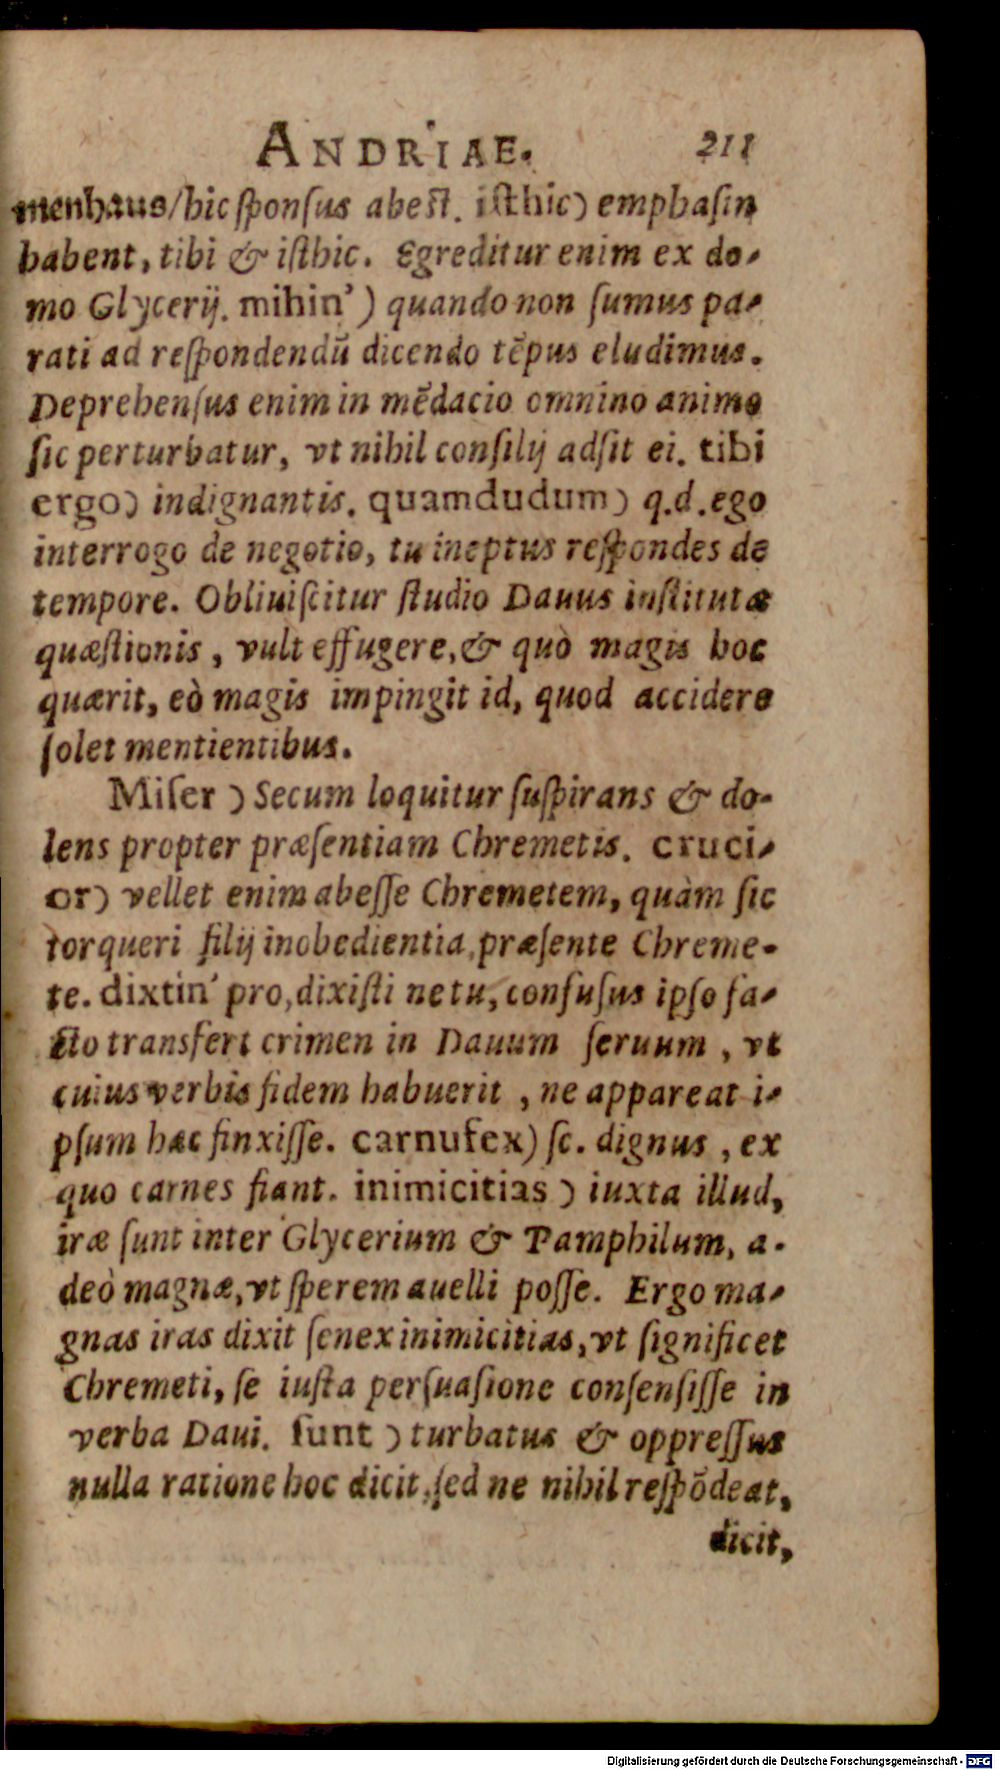 ANDRIAE. 211
menhaus/hic ſponſus abeſt. iſthic) emphaſin
habent, tibi & iſthic. Egreditur enim ex do-
mo Glycerij. mihin') quando non ſumus pa-
rati ad reſpondendū dicendo tēpus eludimus.
Deprehenſus enim in mēdacio omnino animo
ſic perturbatur, vt nihil conſilij adſit ei. tibi
ergo) indignantis. quamdudum) q.d. ego
interrogo de negotio, tu ineptus reſpondes de
tempore. Obliuiſcitur ſtudio Dauus inſtitutæ
quæſtionis, vult effugere, & quò magis hoc
quærit, eò magis impingit id, quod accidere
ſolet mentientibus.
Miſer) Secum loquitur ſuſpirans & do-
lens propter præſentiam Chremetis. cruci-
or) vellet enim abeſſe Chremetem, quàm ſic
torqueri filij inobedientia, præſente Chreme-
te. dixtin' pro, dixiſti ne tu, confuſus ipſo fa-
cto transfert crimen in Dauum ſeruum, vt
cuius verbis fidem habuerit, ne appareat i-
pſum hæc finxiſſe. carnufex) ſc. dignus, ex
quo carnes fiant. inimicitias) iuxta illud,
iræ ſunt inter Glycerium & Pamphilum, a-
deò magnæ, vt ſperem auelli poſſe. Ergo ma-
gnas iras dixit ſenex inimicitias, vt ſignificet
Chremeti, ſe iuſta perſuaſione conſenſiſſe in
verba Daui. ſunt) turbatus & oppreſſus
nulla ratione hoc dicit, ſed ne nihil reſpōdeat,
dicit,
Digitalisierung gefördert durch die Deutsche Forschungsgemeinschaft - DFG